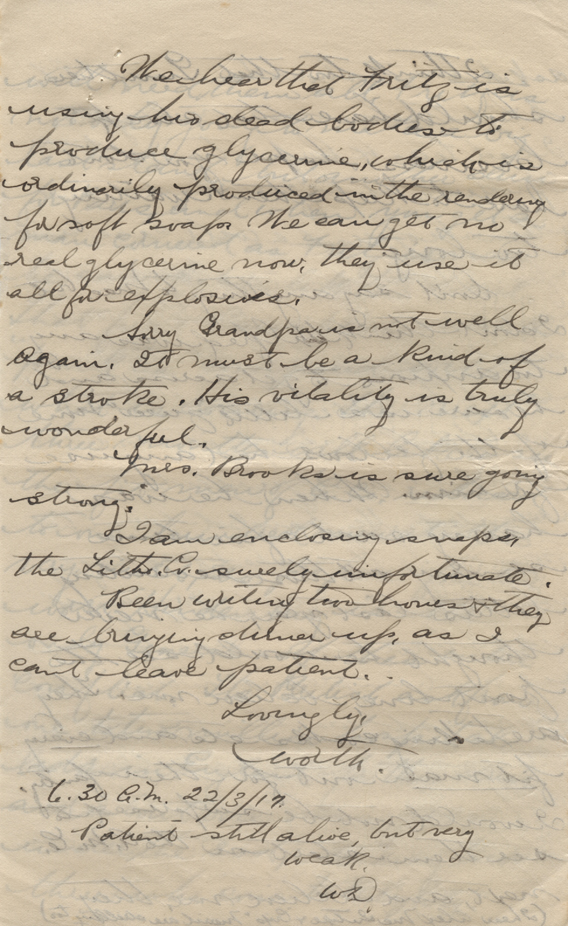 We hear that Fritz is
using his dead bodies to
produce glycerine, which is
ordinarily produced in the rendering
for soft soap. We can get no
real glycerine now, they use it
all for explosives.
Sorry Grandpa is not well
again. It must be a kind of
a stroke. His vitality is truly
wonderful.
Mrs. Brooks is sure going
strong.
I am enclosing snaps,
the Litho. Co. surely unfortunate.
Been writing two hours & they
are bringing dinner up, as I
can't leave patient.
Lovingly,
Worth.
6.30 A.M. 22/3/17.
Patient still alive, but very
weak.
WD